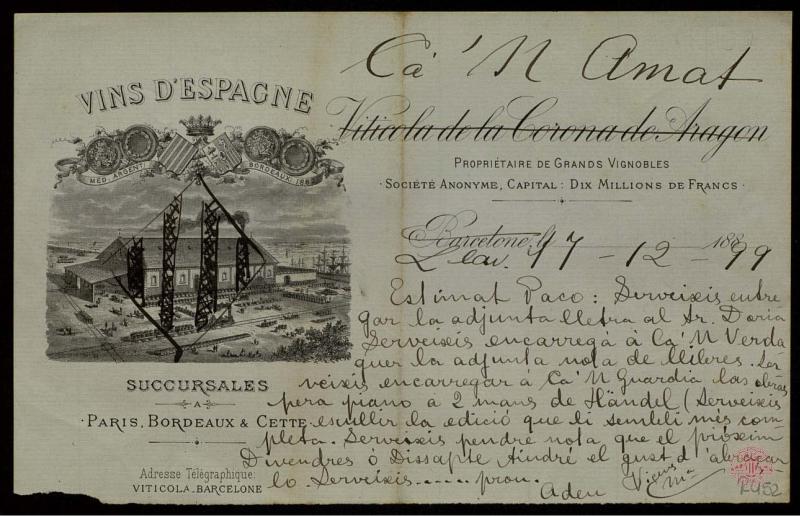 Ca 'N Amat
VINS D'ESPAGNE
MÉD. ARGENT.
BORDEAUX 188
Viticola de la Corona de Aragon
PROPRIÉTAIRE DE GRANDS VIGNOBLES
· SOCIÉTÉ ANONYME, CAPITAL: DIX MILLIONS DE FRANCS ·
Barcelone, 188
17 - 12 - 99
Estimat Paco: Serveixis entre
gar la adjunta lletra al Sr. Doria
Serveixis encarregá à Ca 'N Verda
guer la adjunta nota de llibres. Ser
veixis encarregar á Ca 'N Guardia las obras
pera piano à 2 mans de Händel (Serveixis
escullir la edició que li sembli més com
pleta. Serveixis pendrе nota que el próxim
Divendres ó Dissapte tindré el gust d'abraçar
lo Serveixis ..... prou.
Adeu
SUCCURSALES
A
PARIS, BORDEAUX & CETTE
Adresse Télégraphique:
VITICOLA_BARCELONE
R.452